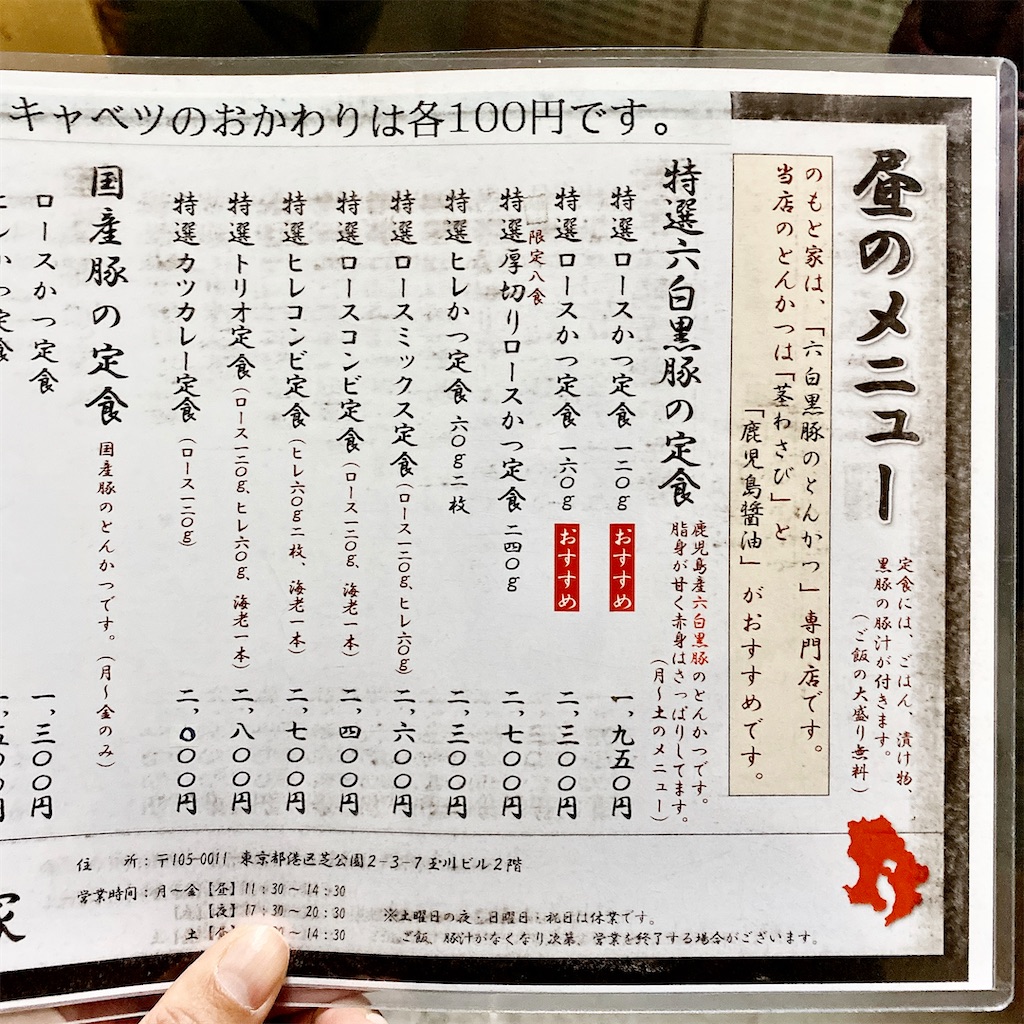 キャベツのおかわりは各100円です。
昼のメニュー
定食には、ごはん、漬け物、
黒豚の豚汁が付きます。
（ご飯の大盛り無料）
のもと家は、「六白黒豚のとんかつ」専門店です。
当店のとんかつは「茎わさび」と
「鹿児島醬油」がおすすめです。
特選六白黒豚の定食
鹿児島産六白黒豚のとんかつです。
脂身が甘く赤身はさっぱりしてます。
（月～土のメニュー）
特選ロースかつ定食 一二〇g おすすめ 一、九五〇円
特選ロースかつ定食 一六〇g おすすめ 二、三〇〇円
限定八食
特選厚切りロースかつ定食 二四〇g 二、七〇〇円
特選ヒレかつ定食 六〇g二枚 二、三〇〇円
特選ロースミックス定食（ロース一二〇g、ヒレ六〇g） 二、六〇〇円
特選ロースコンビ定食（ロース一二〇g、海老一本） 二、四〇〇円
特選ヒレコンビ定食（ヒレ六〇g二枚、海老一本） 二、七〇〇円
特選トリオ定食（ロース一二〇g、ヒレ六〇g、海老一本） 二、八〇〇円
特選カツカレー定食（ロース一二〇g） 二、〇〇〇円
国産豚の定食
国産豚のとんかつです。（月～金のみ）
ロースかつ定食 一、三〇〇円
住 所：〒105-0011 東京都港区芝公園2-3-7玉川ビル2階
営業時間：月～金【昼】11：30～14：30
【夜】17：30～20：30
土 14：30
※土曜日の夜・日曜日・祝日は休業です。
ご飯、豚汁がなくなり次第、営業を終了する場合がございます。